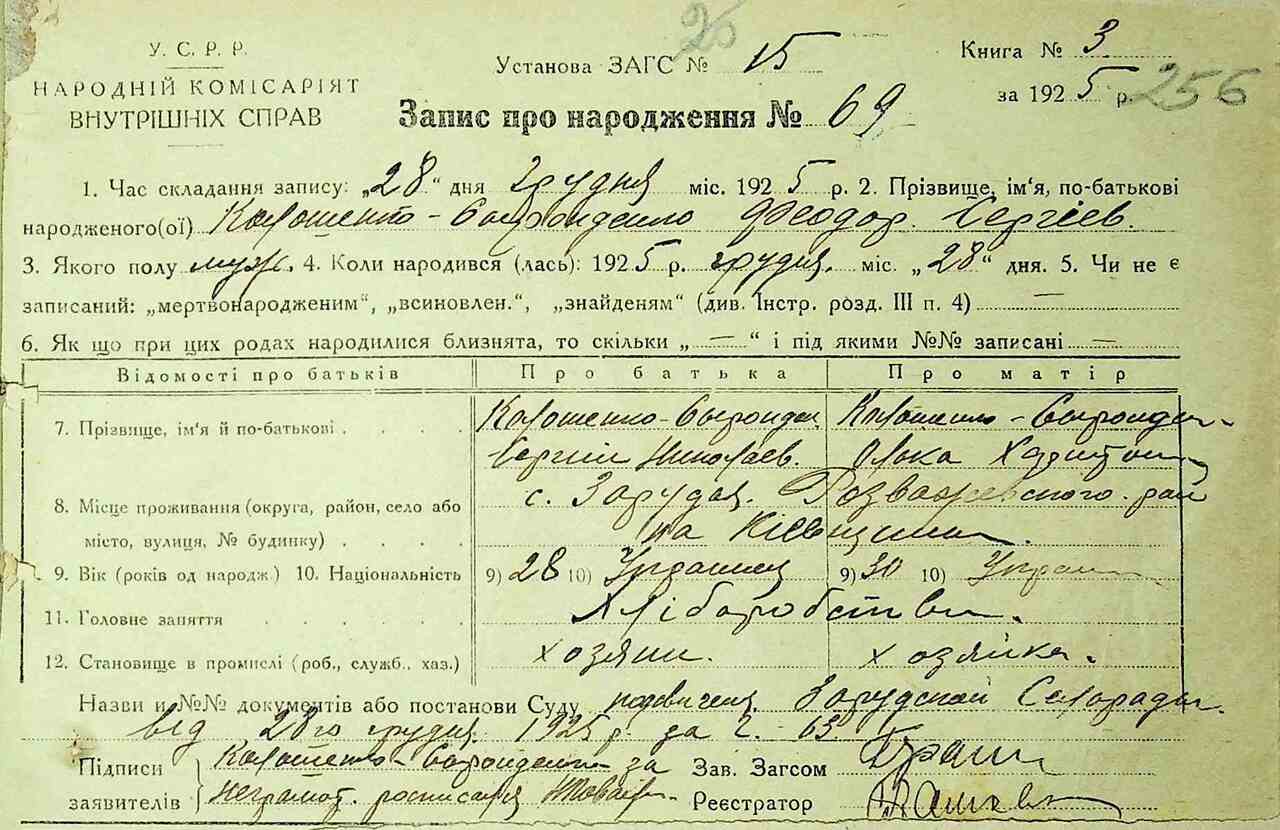 25
У. С. Р. Р.
НАРОДНІЙ КОМІСАРІЯТ
ВНУТРІШНІХ СПРАВ
Установа ЗАГС № 15
Книга № 3
за 1925 р. 256
Запис про народження № 69
1. Час складання запису: „28“ дня грудня міс. 1925 р. 2. Прізвище, ім‘я, по-батькові
народженого(ої) Феодор Сергіев.
3. Якого полу муж. 4. Коли народився (лась): 1925 р. грудня. міс. „28“ дня. 5. Чи не є
записаний: „мертвонародженим“, „всиновлен.“, „знайденям“ (див. Інстр. розд. III п. 4) —
6. Як що при цих родах народилися близнята, то скільки „—“ і під якими №№ записані —
Відомості про батьків Про батька Про матір
7. Прізвище, ім‘я й по-батькові
Сергій Николаев. Харитон
8. Місце проживання (округа, район, село або с. Зарудя. Розважевского рай
місто, вулиця, № будинку) на Київщини.
9. Вік (років од народж) 10. Національність 9) 28 10) Украинец 9) 30 10) Украин
11. Головне заняття Хліборобство.
12. Становище в промислі (роб., служб., хаз.) хозяин. хозяйка.
Назви и №№ документів або постанови Суду Зарудской Сельрады
від 28го грудня 1925 р. за ч. 63
Підписи за Зав. Загсом
заявителів Неграмот. росписался Реєстратор